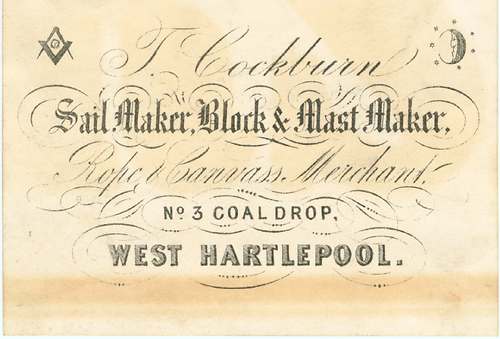 T. Cockburn
Sail Maker, Block & Mast Maker,
Rope & Canvass Merchant.
No 3 COAL DROP,
WEST HARTLEPOOL.